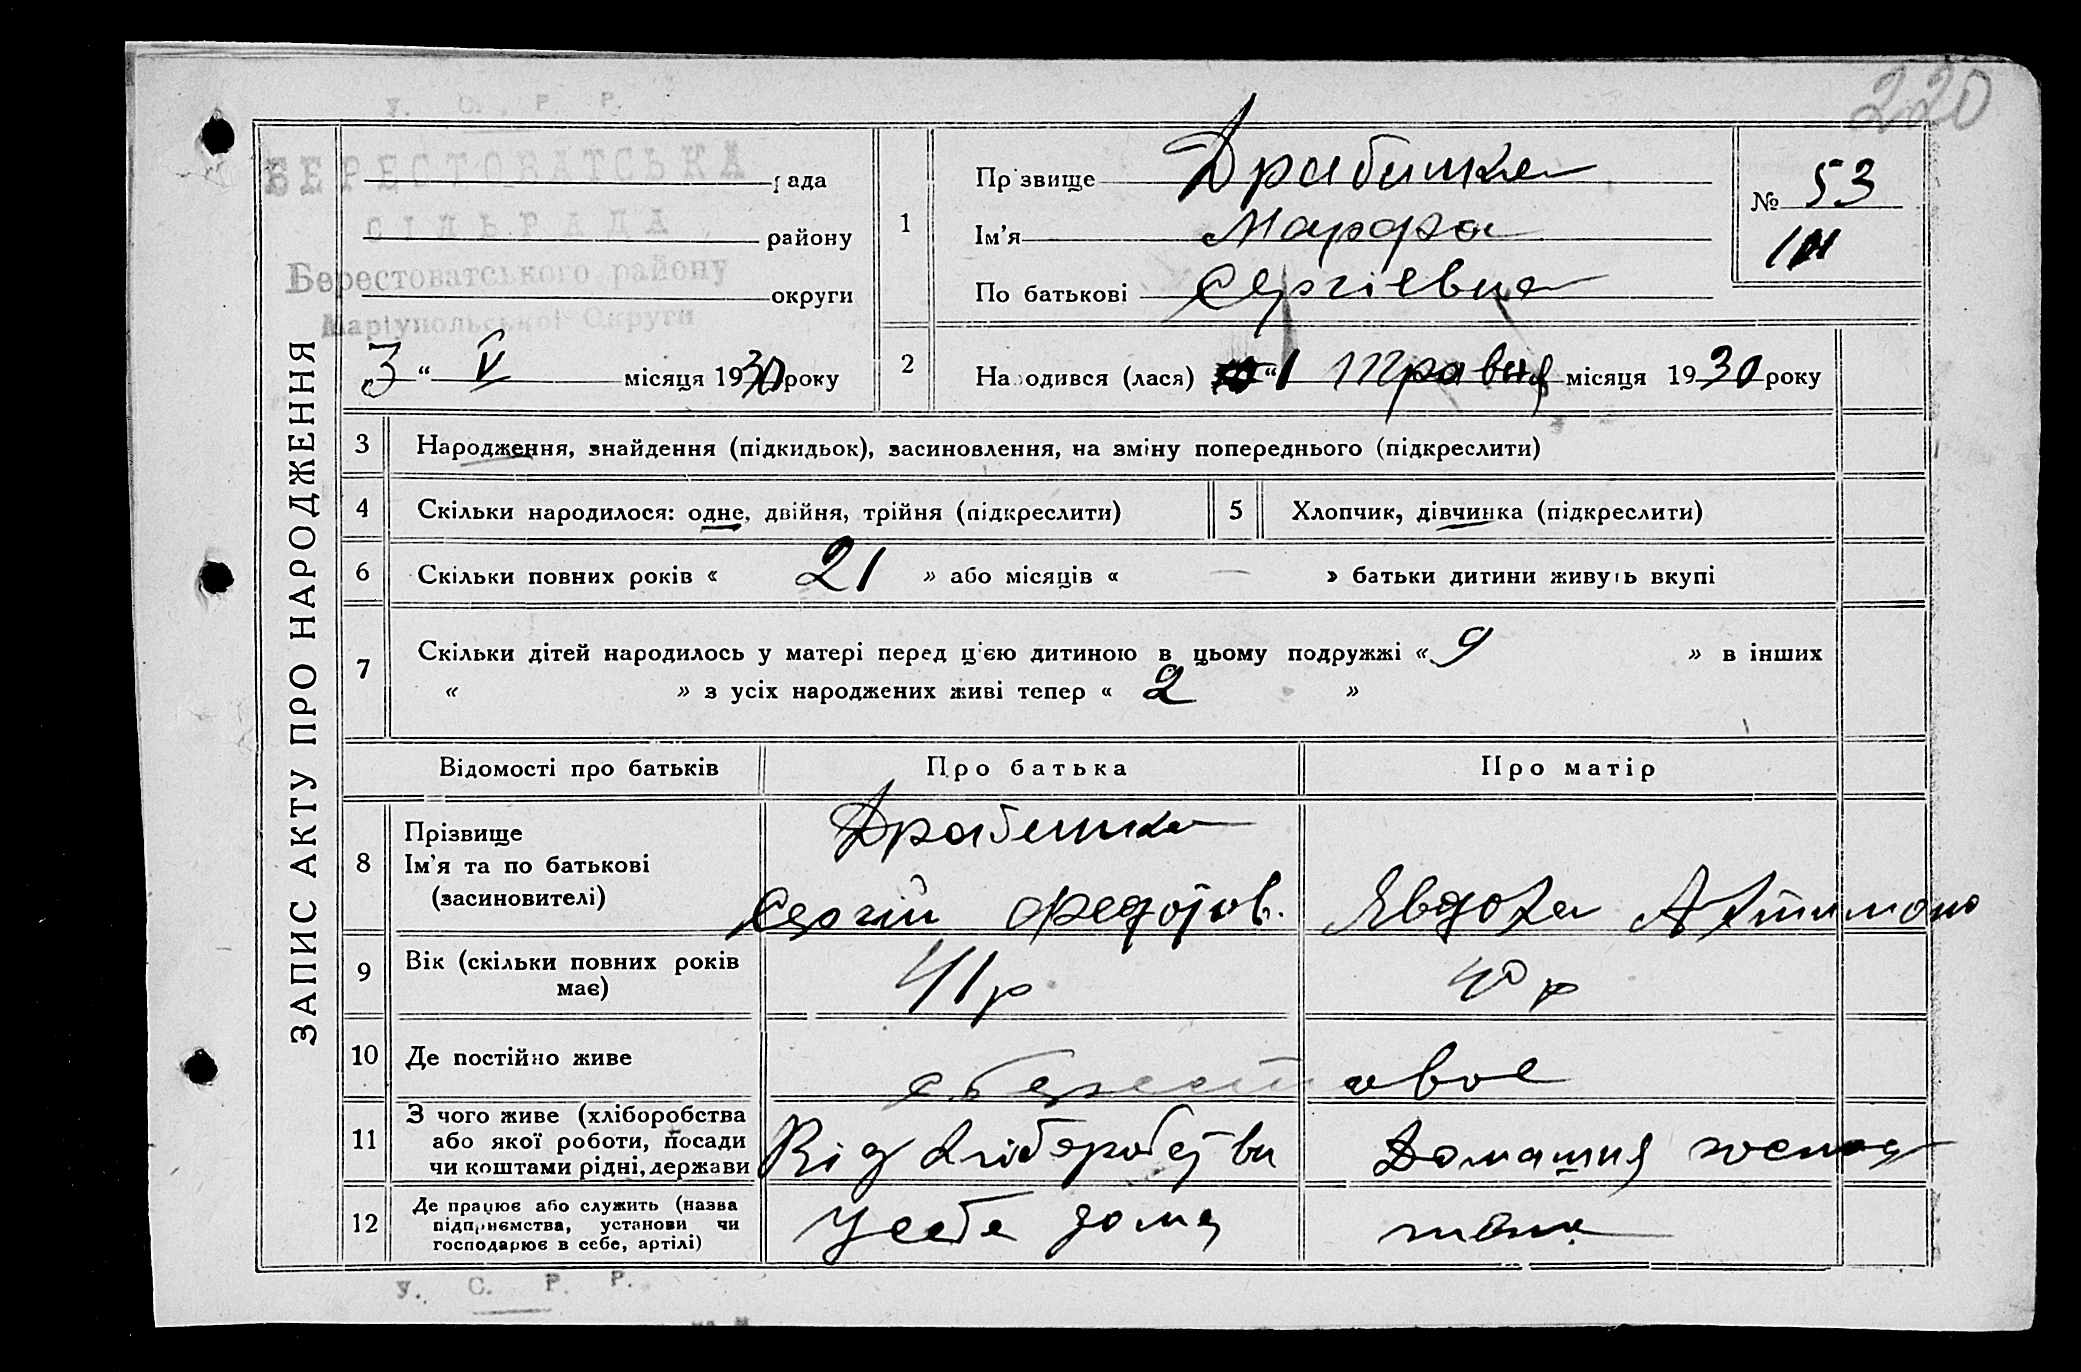 220
У. С. Р. Р.
БЕРЕСТОВАТСЬКА рада
СІЛЬРАДА району
Берестоватського району
округи
Маріупольської Округи
3 “ V місяця 1930 року
ЗАПИС АКТУ ПРО НАРОДЖЕННЯ
1
Прізвище Драбишка
Ім’я Марфа
По батькові Сергіевна
№ 53
2 Народився (лася) “1 Травня місяця 1930 року
3 Народження, знайдення (підкидьок), засиновлення, на зміну попереднього (підкреслити)
4 Скільки народилося: одне, двійня, трійня (підкреслити) 5 Хлопчик, дівчинка (підкреслити)
6 Скільки повних років « 21 » або місяців « — » батьки дитини живуть вкупі
7 Скільки дітей народилось у матері перед ц’єю дитиною в цьому подружжі « 9 » в інших
« » з усіх народжених живі тепер « 2 »
Відомості про батьків Про батька Про матір
8 Прізвище Драбишка
Ім’я та по батькові
(засиновителі) Сергій Федотов. Явдоха
9 Вік (скільки повних років 41 р 40 р
має)
10 Де постійно живе с. Берестовое
11 З чого живе (хліборобства
або якої роботи, посади Від хліборобства Домашня господ
чи коштами рідні, держави
12 Де працює або служить (назва
підприємства, установи чи У себе дома
господарює в себе, артілі)
У. С. Р. Р.